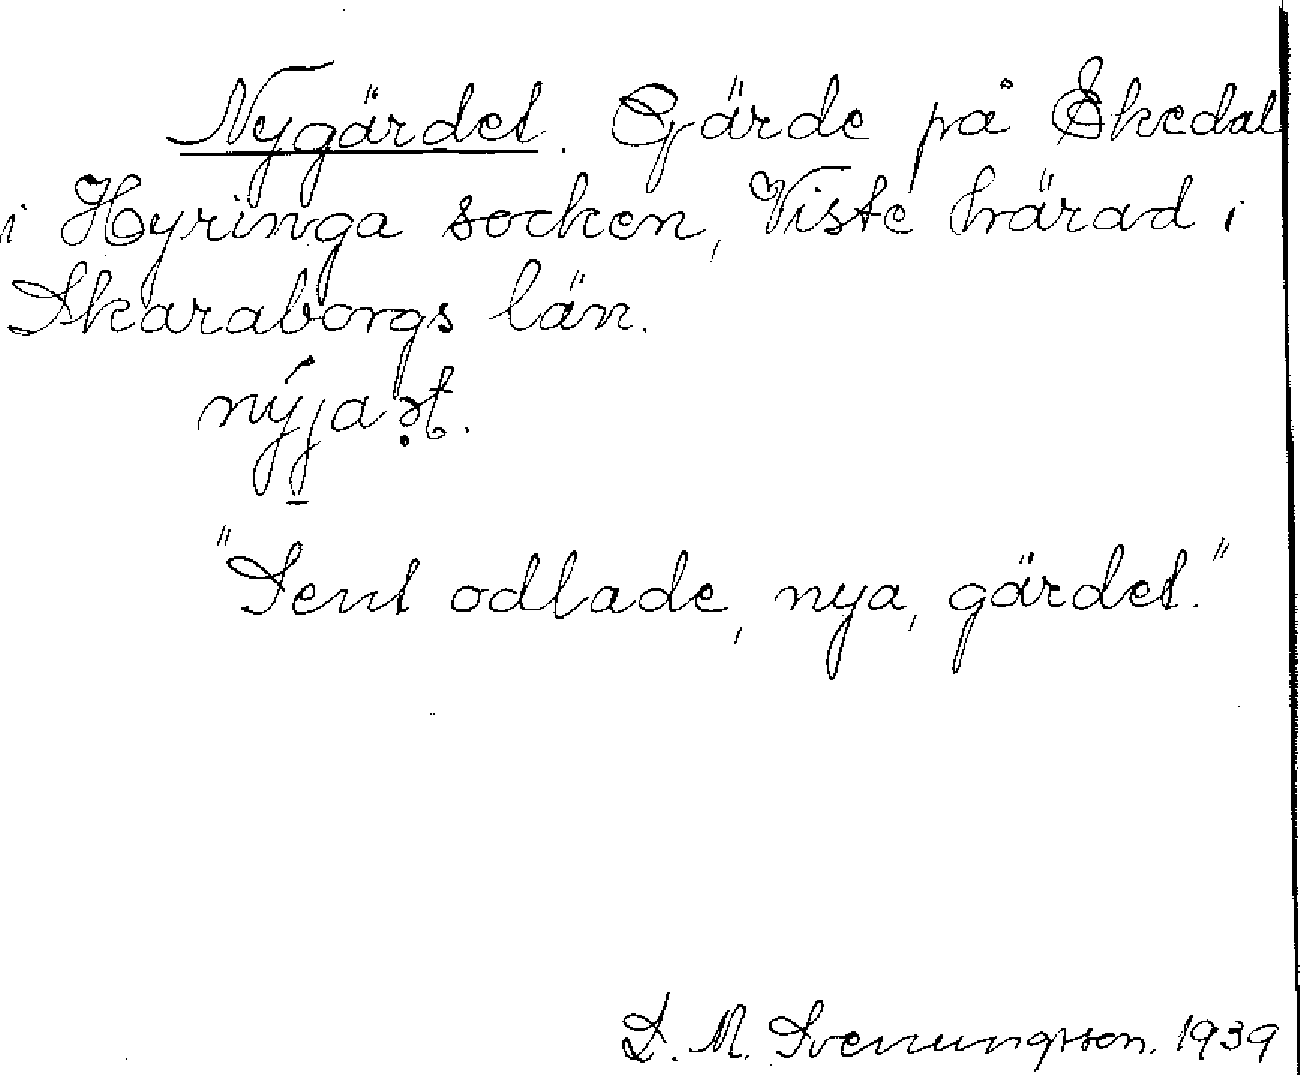 Nygärdet. Gärde på Ekedal
i Hyringa socken, Viste härad i
Skaraborgs län.
"Sent odlade, nya, gärdet."
D. M. Svenungsson. 1939